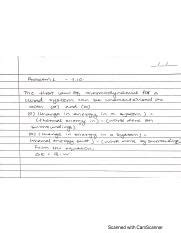 Problem 1 - 1.10
The first law of thermodynamics for a
closed system can be understood as
both (a) and (b)
(a) (change in energy in a system) =
(thermal energy in) - (work done on
surroundings)
(b) (change in energy in a system) =
- (work done by surroundings)
From the equation,
ΔE = Q - W
Scanned with CamScanner